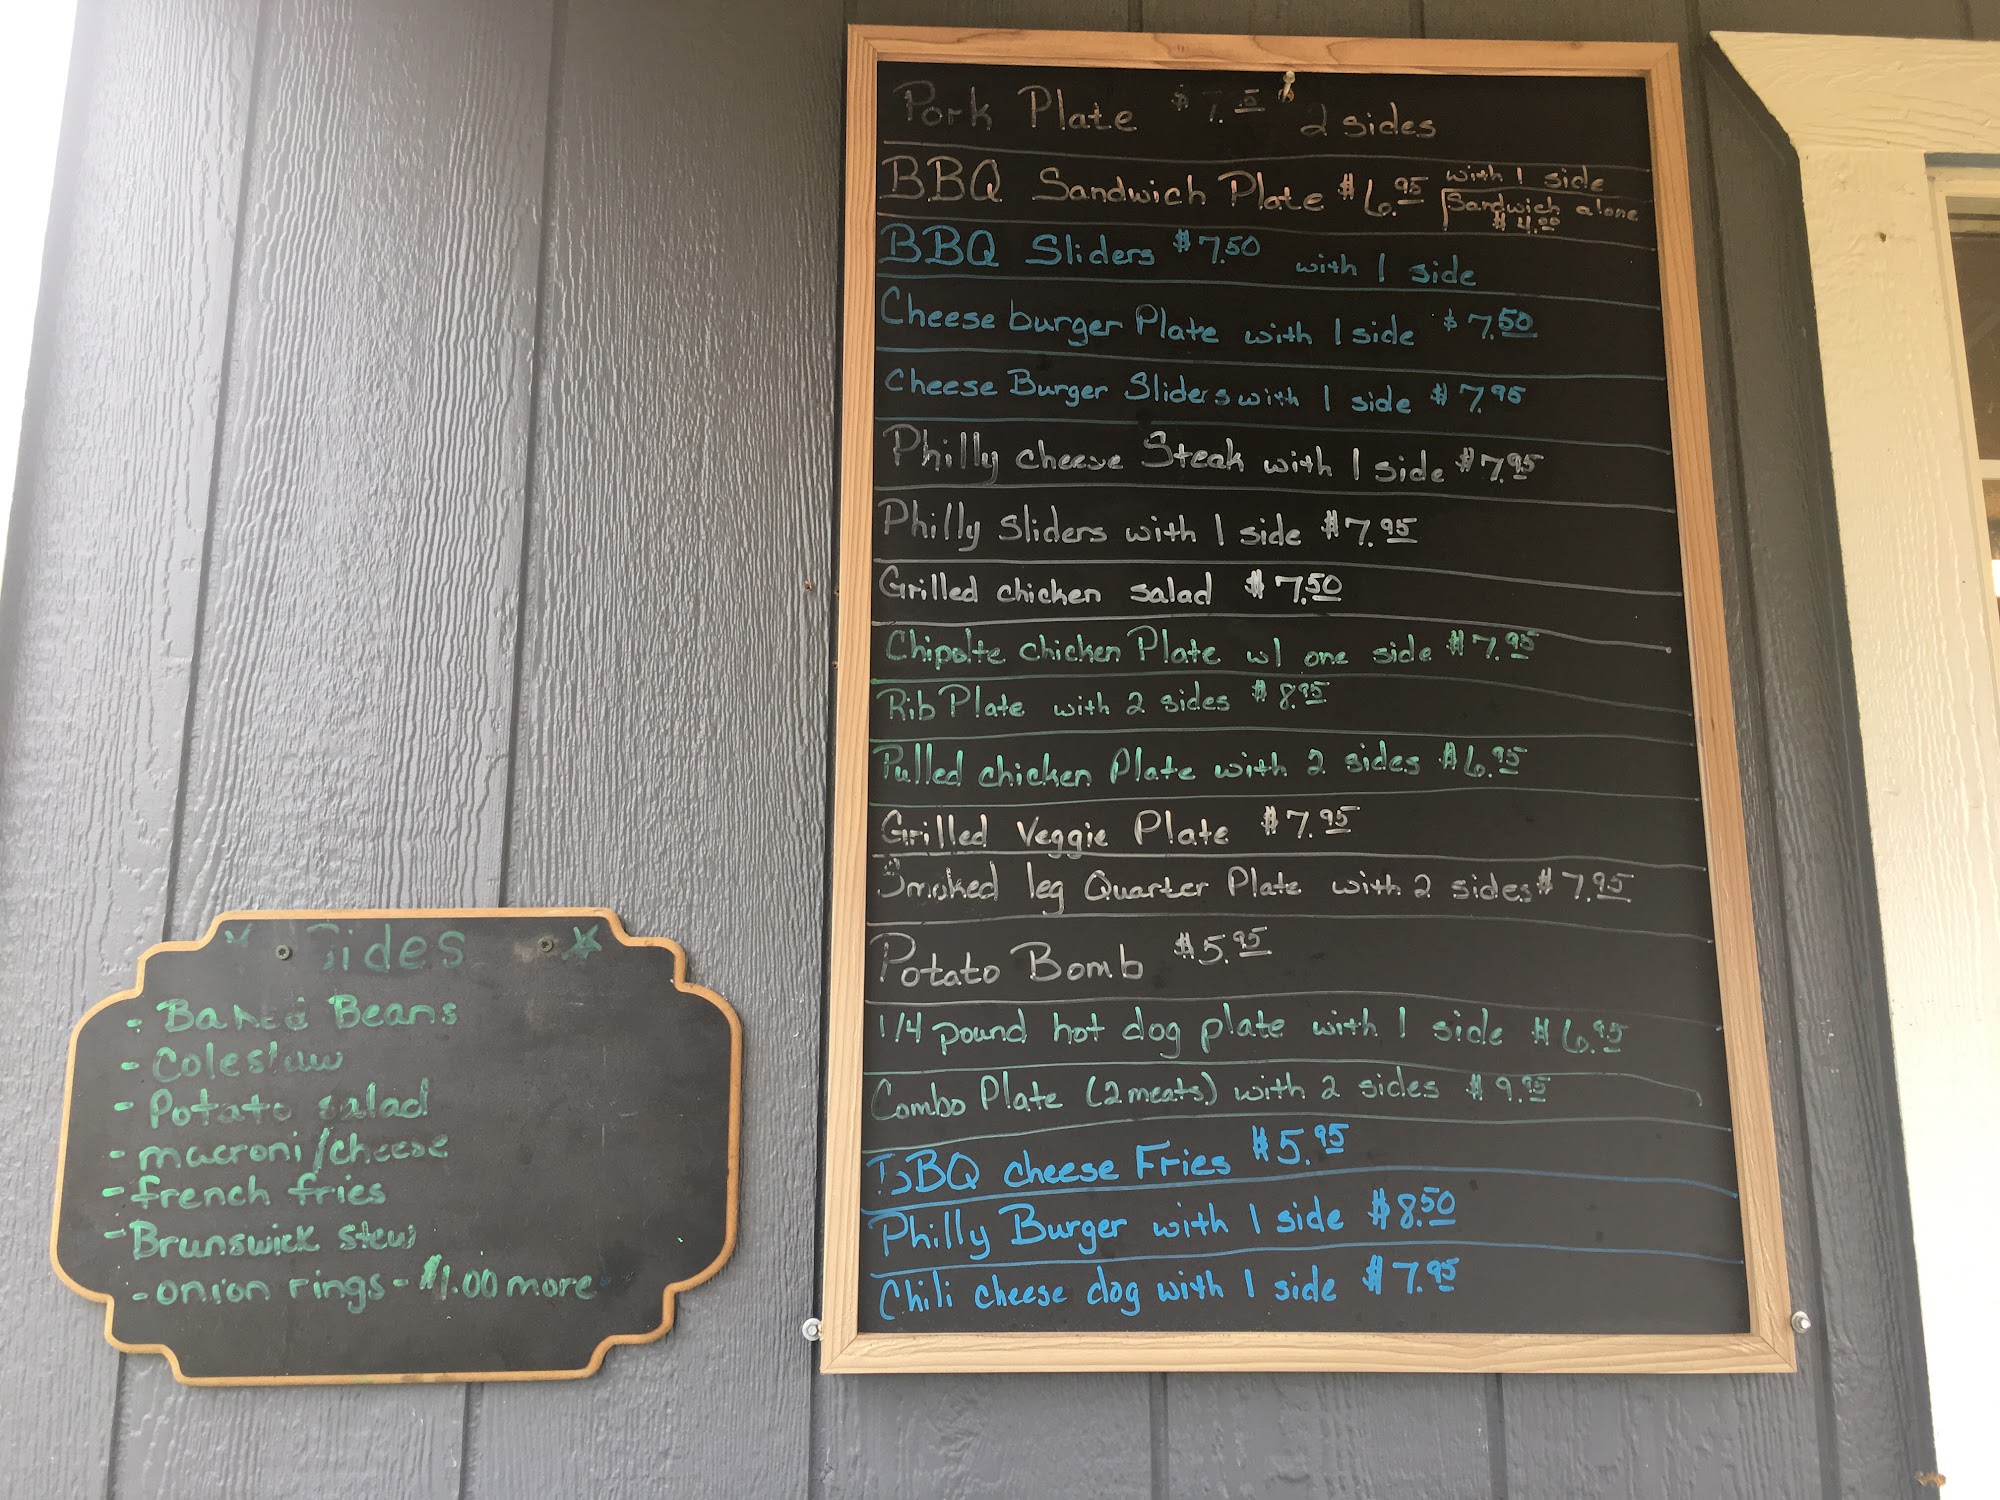 Pork Plate 2 sides
BBQ Sandwich Plate $6.95 with 1 side
Sandwich alone
$4.00
BBQ Sliders $7.50 with 1 side
Cheese burger Plate with 1 side $7.50
Cheese Burger Sliders with 1 side $7.95
Philly cheese Steak with 1 side $7.95
Philly Sliders with 1 side $7.95
Grilled chicken salad $7.50
Chipolte chicken Plate w/ one side $7.95
Rib Plate with 2 sides $8.95
Pulled chicken Plate with 2 sides $6.95
Grilled Veggie Plate $7.95
Smoked leg Quarter Plate with 2 sides $7.95
Potato Bomb $5.95
1/4 pound hot dog plate with 1 side $6.95
Combo Plate (2 meats) with 2 sides $9.95
BBQ cheese Fries $5.95
Philly Burger with 1 side $8.50
Chili cheese dog with 1 side $7.95
Sides
- Baked Beans
- Coleslaw
- Potato salad
- macroni/cheese
- french fries
- Brunswick stew
- onion rings - $1.00 more